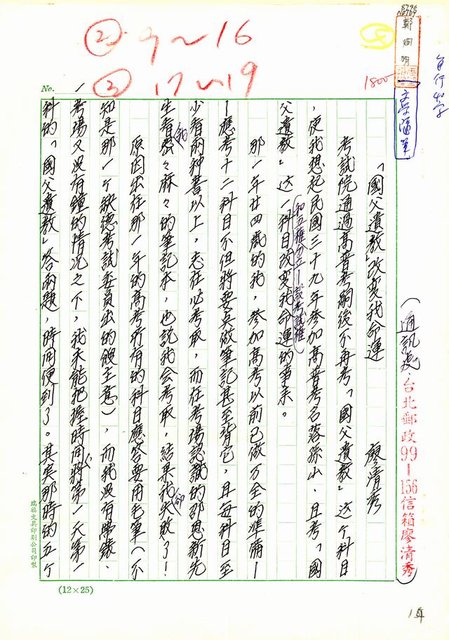 ② 9~16
② 17~19
1800
自行四字
No.
「國父遺教」改變我命運
廖清秀
(通訊處)台北郵政99-156信箱廖清秀
考試院通過高普考嗣後不再考「國父遺教」這个科目
,使我想起民國三十九年參加高普考名落孫山,且考「國
父遺教」這一科目改變我命運的事來。
那一年廿四歲的我,參加高考以前已做万全的準備—
—應考十二科目不但將要點做筆記甚至背它,且每科目至
少看兩种書以上,志在必考取,而在考場認識的那思新先
生看我密々麻々的筆記後,也說我会考取,結果我卻失敗了!
原因出在那一年的高考所有的科目應答要用毛筆(不
知是那一个缺德考試委員出的餿主意),而我沒有手錶、
考場又沒有鐘的情況之下,我未能把握時間,將第一天第一
科的「國父遺教」答兩題,時間便到了。其实那時的五个
(12×25)